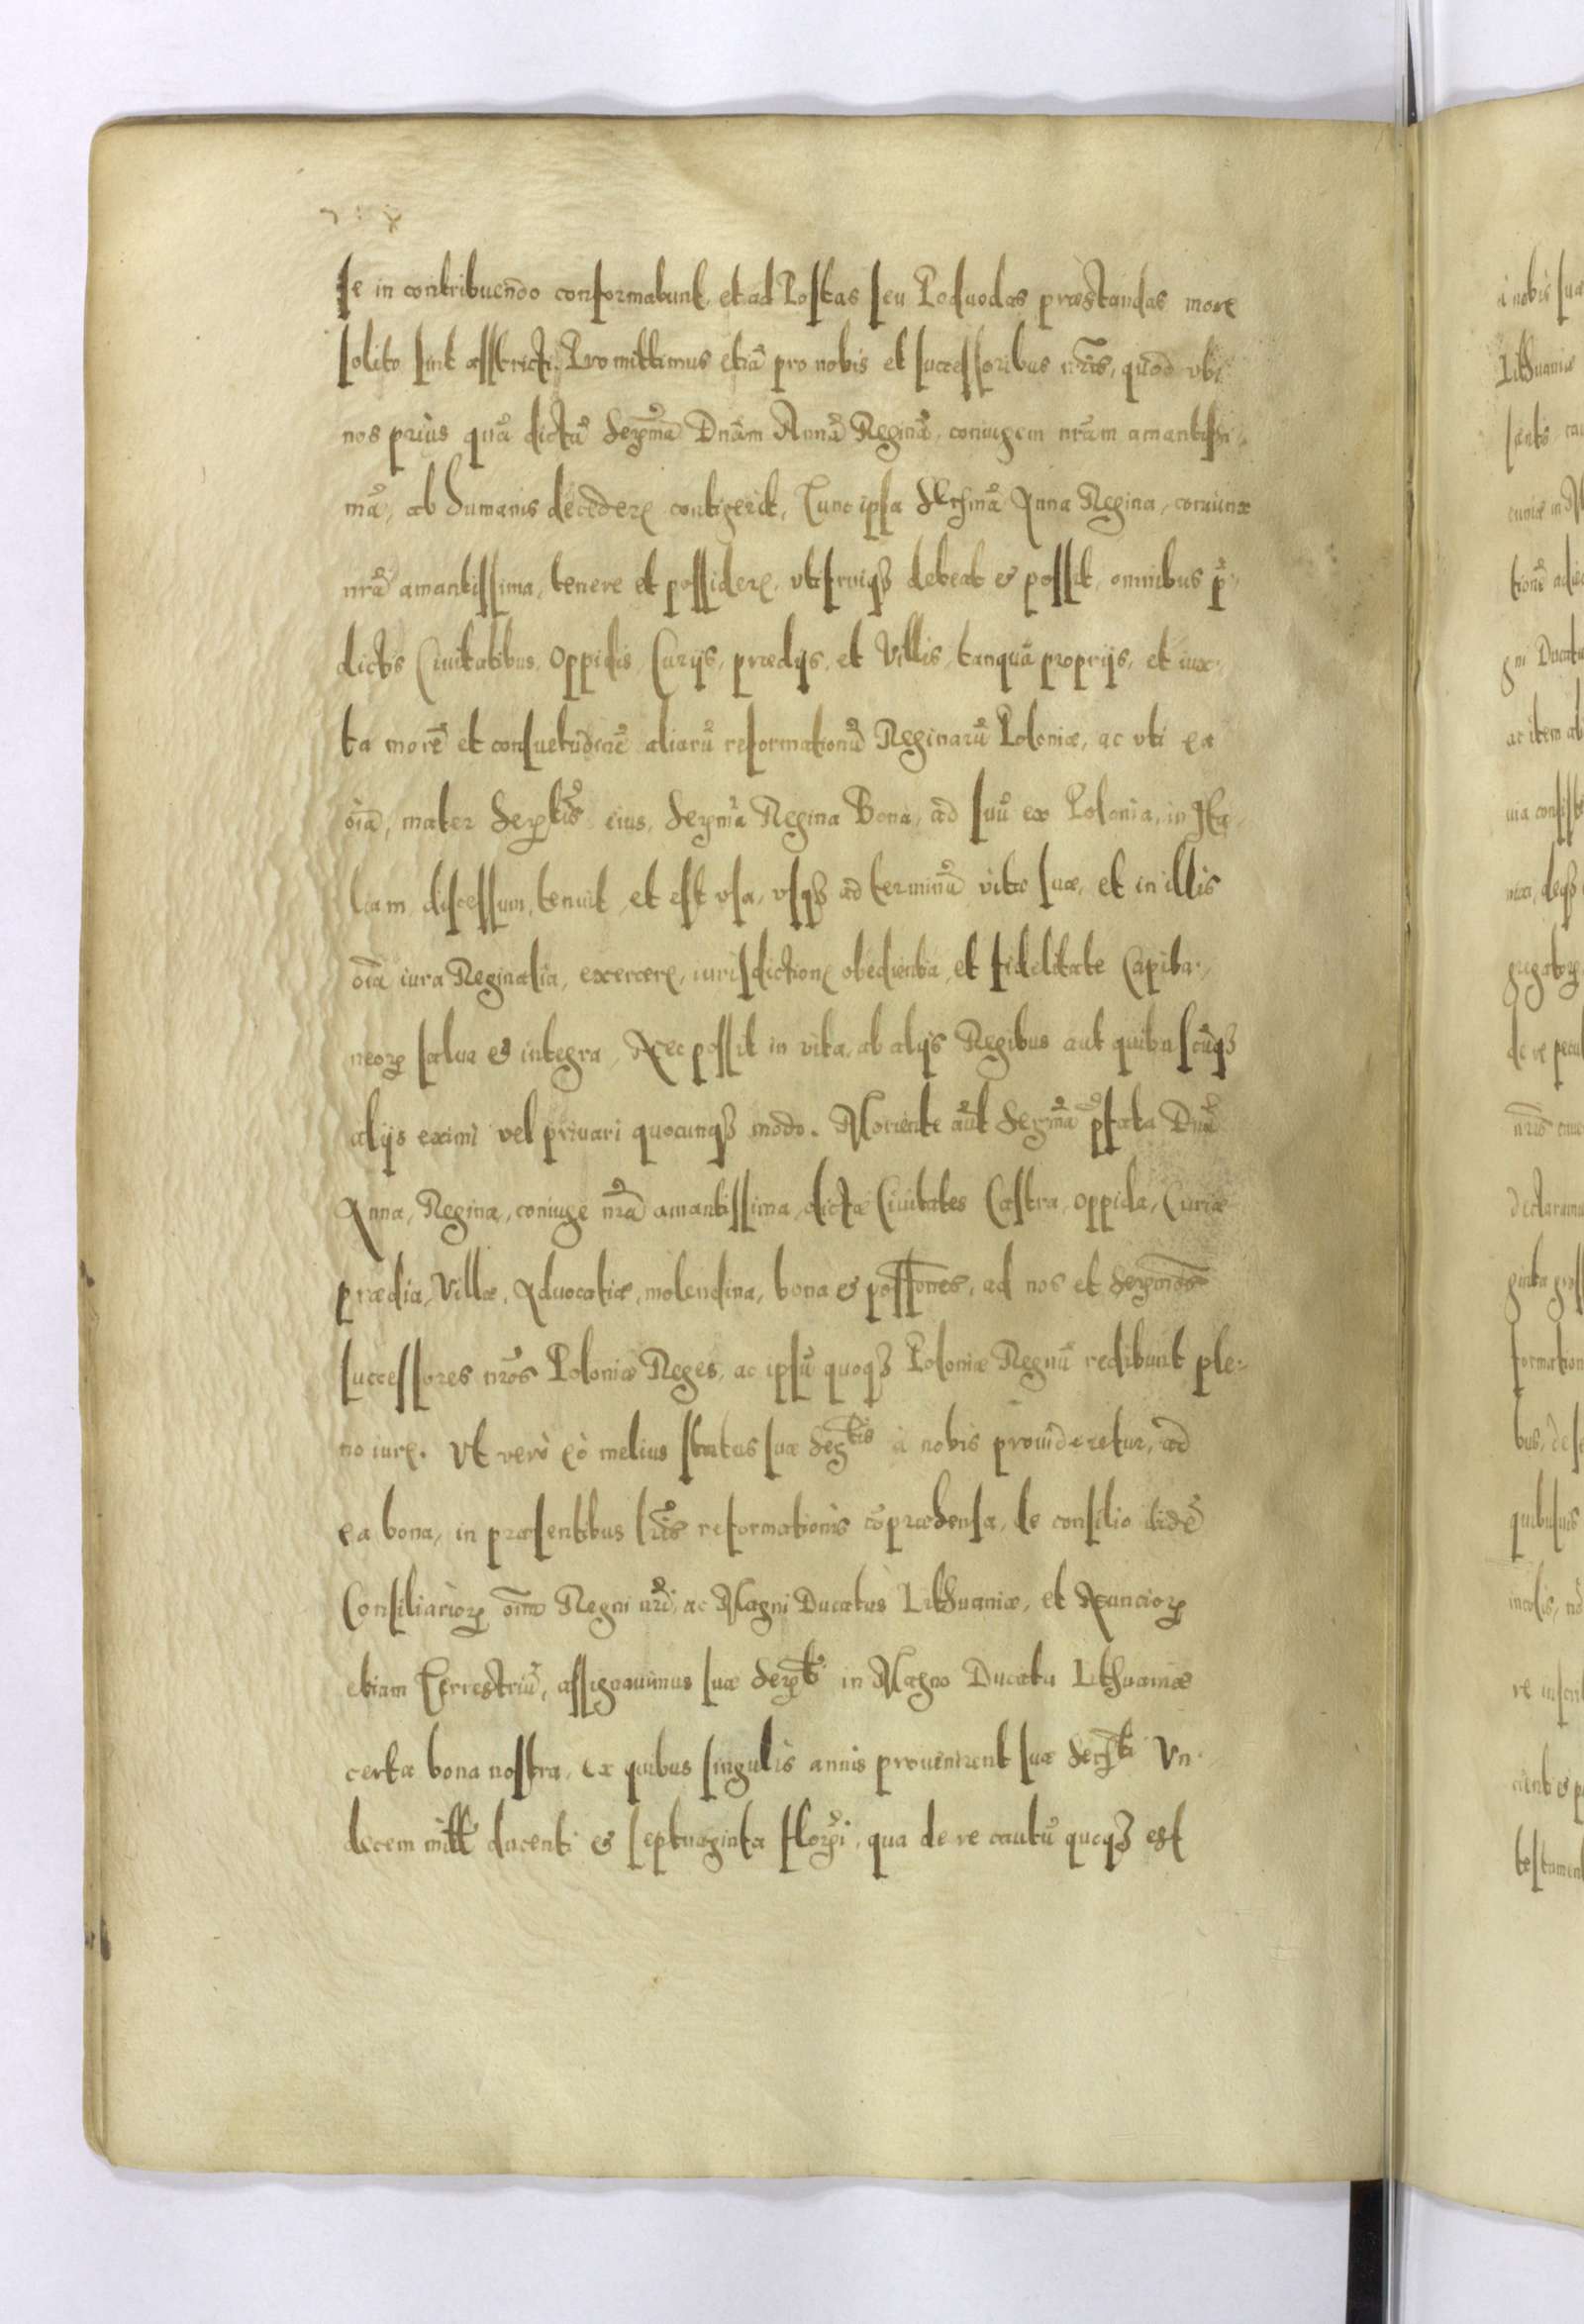 se in contribuendo conformabunt, et ad Postas seu Podwodas præstandas more
solito sint asstricti. Promittimus etiā pro nobis et successoribus nr̃is, quòd vbi
nos priùs quā dictā Serg̃mā Dnãm Annā Reginā, coniugem nrãm amantissi-
mā, ab humanis decedere contigerit, Tunc ipsa Serg̃mã Anna Regina, coniunx
nrã amantissima, tenere et possidere, vtifruiq₃ debeat & possit, omnibus p̃-
dictis Ciuitatibus, Oppidis, Curijs, prædijs, et Villis, tanquā proprijs, et iux-
ta morē et consuetudinē aliarū reformationū Reginarū Poloniæ, ac vti ea
oĩa, mater Sergtĩs eius, Serg̃ma Regina Bona, ad suū ex Polonia, in Ita-
liam discessum, tenuit, et est vsa, vsq₃ ad terminū vitæ suæ, et in illis
oĩa iura Reginalia, exercere, iurisdictione obedientia, et fidelitate Capita-
neorꝝ salua & integra, Nec possit in vita, ab alijs Regibus aut quibuscūq₃
alijs eximi vel priuari quocunq₃ modo. Moriente aũt Serg̃mã p̃fata Dnã
Anna, Regina, coniuge nr̃ã amantissima, dictæ Ciuitates Castra, oppida, Curiæ
prædia, Villæ, Aduocatiæ, molendina, bona & possĩones, ad nos et Serg̃mos
successores nrõs Poloniæ Reges, ac ipsū quoq₃ Poloniæ Regnū redibunt ple-
no iure. Vt verò eò melius status suæ Sergtis à nobis prouideretur, ad
ea bona, in præsentibus lr̃is reformationis cōpræhensa, de consilio itidē
Consiliariorꝝ oĩm Regni nrĩ, ac Magni Ducatus Lithuaniæ, et Nunciorꝝ
etiam Terrestriū, assignauimus suæ Sergti in Magno Ducatu Lithuaniæ
certa bona nostra, ex quibus singulis annis prouenirent suæ Sergti Vn-
decem mille ducenti & septuaginta florẽi, qua de re cautū quoq₃ est